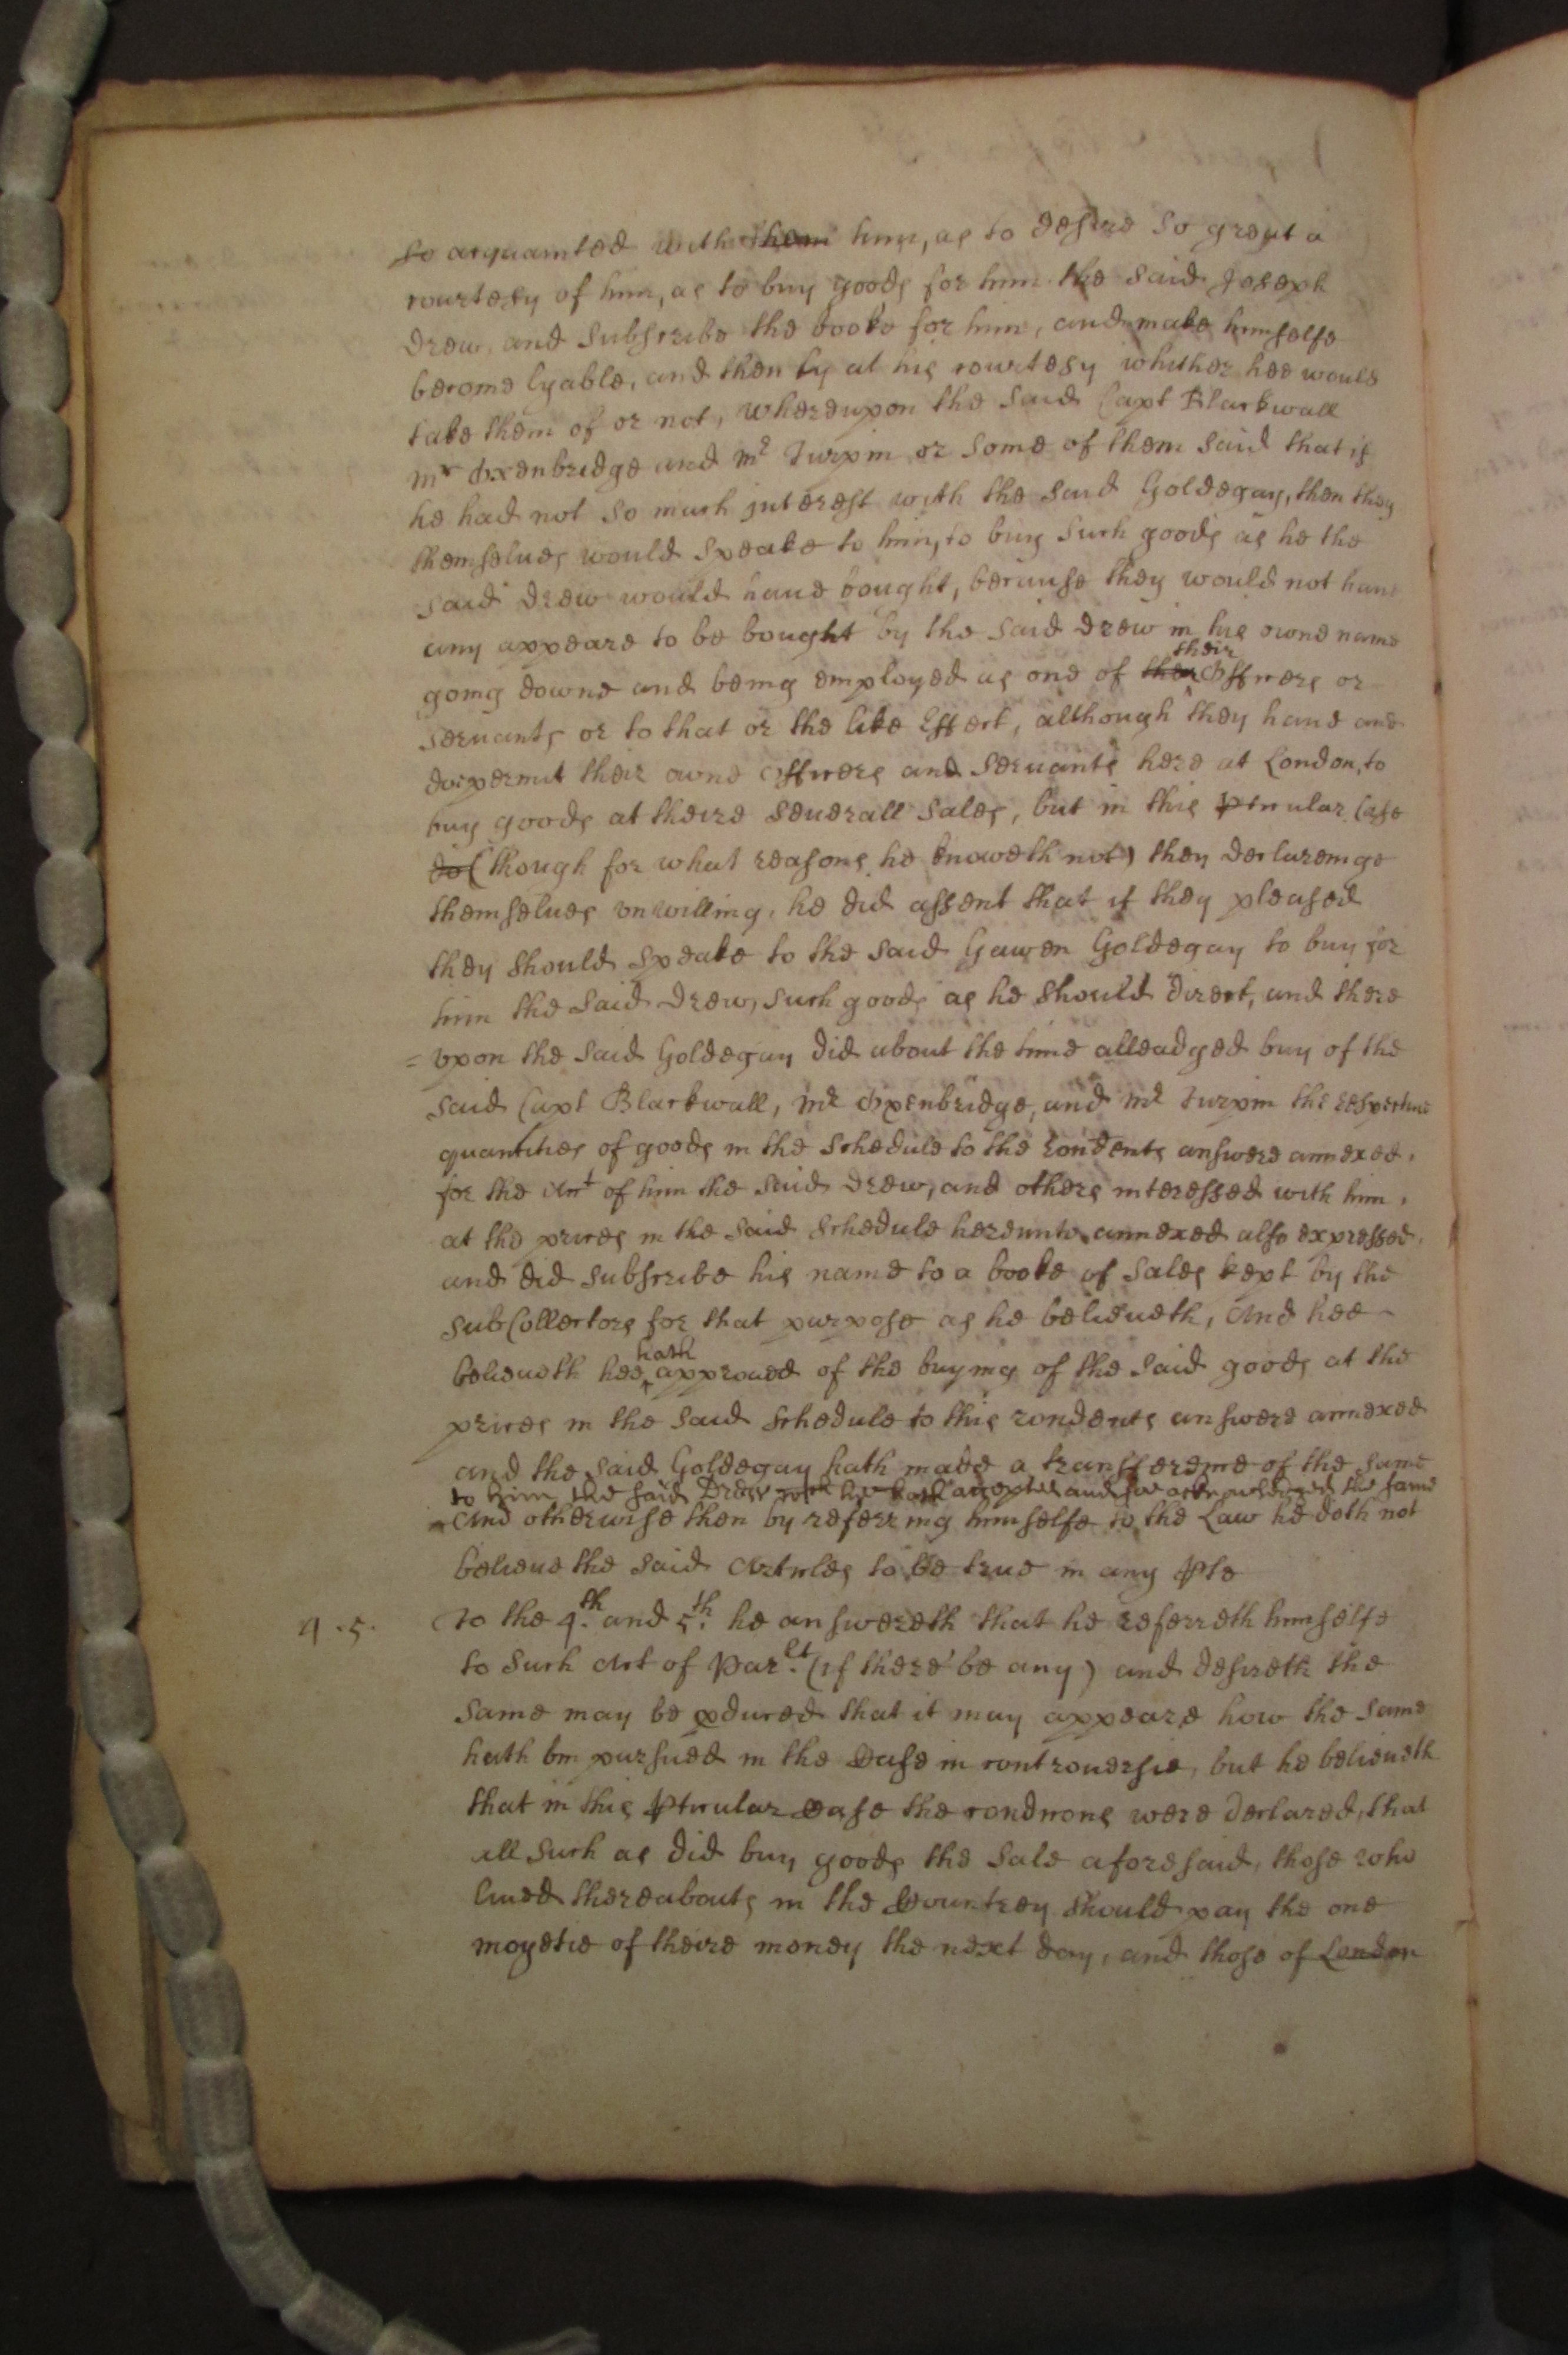 so acquainted with him, as to desire so great a
courtesy of him, as to buy goods for him the said Joseph
Drew and subscribe the booke for him, and make himselfe
become lyable, and then ly at his courtesy whither hee would
take them of or not, whereupon the said Capt Blackwall
Mr Oxenbridge and Mr Turpin or some of them said that if
he had not so much interest with the said Goldegay, then they
themselues would speake to him, to buy such goods as he the
said Drew would haue bought, because they would not haue
any appeare to be bought by the said Drew in his owne name
going downe and being employed as one of their Officers or
seruants or to that or the like Effect, although they haue and
doe permit their owne Officers and Seruants here at London, to
buy goods at theire seuerall sales, but in this pticular Case
do (though for what reasons he knoweth not) they declareinge
themselues vnwilling, he did assent that if they pleased
they should speake to the said Gawen Goldegay to buy for
him the said Drew, such goods as he should direct, and there
= vpon the said Goldegay did about the time alleadged buy of the
said Capt Blackwall, Mr Oxenbridge, and Mr Turpin the respectiue
quantities of goods in the schedule to the rondents answere annexed,
for the Act of him the said Drew, and others interessed with him,
at the prices in the said schedule hereunto annexed also expressed,
and did subscribe his name to a booke of sales kept by the
SubCollectors for that purpose as he belieueth, And hee
belieueth hee hath approued of the buying of the said goods at the
prices in the said schedule to this rondents answere annexed
and the said Goldegay hath made a transfereme of the same
to him the said Drew he hath accepted and soe acknowledged the same
And otherwise then by referring himselfe to the Law he doth not
belieue the said Articles to be true in any pte
4 . 5. To the 4th. and 5th. he answereth that he referreth himselfe
to such Act of Parlt. (if there be any) and desireth the
same may be pduced that it may appeare how the same
hath bin pursued in the Case in controuersie, but he belieueth
that in this pticular Case the condicions were declared, that
all such as did buy goods the sale aforesaid, those who
liued thereabouts in the Countrey should pay the one
moyetie of theire money the next day, and those of London